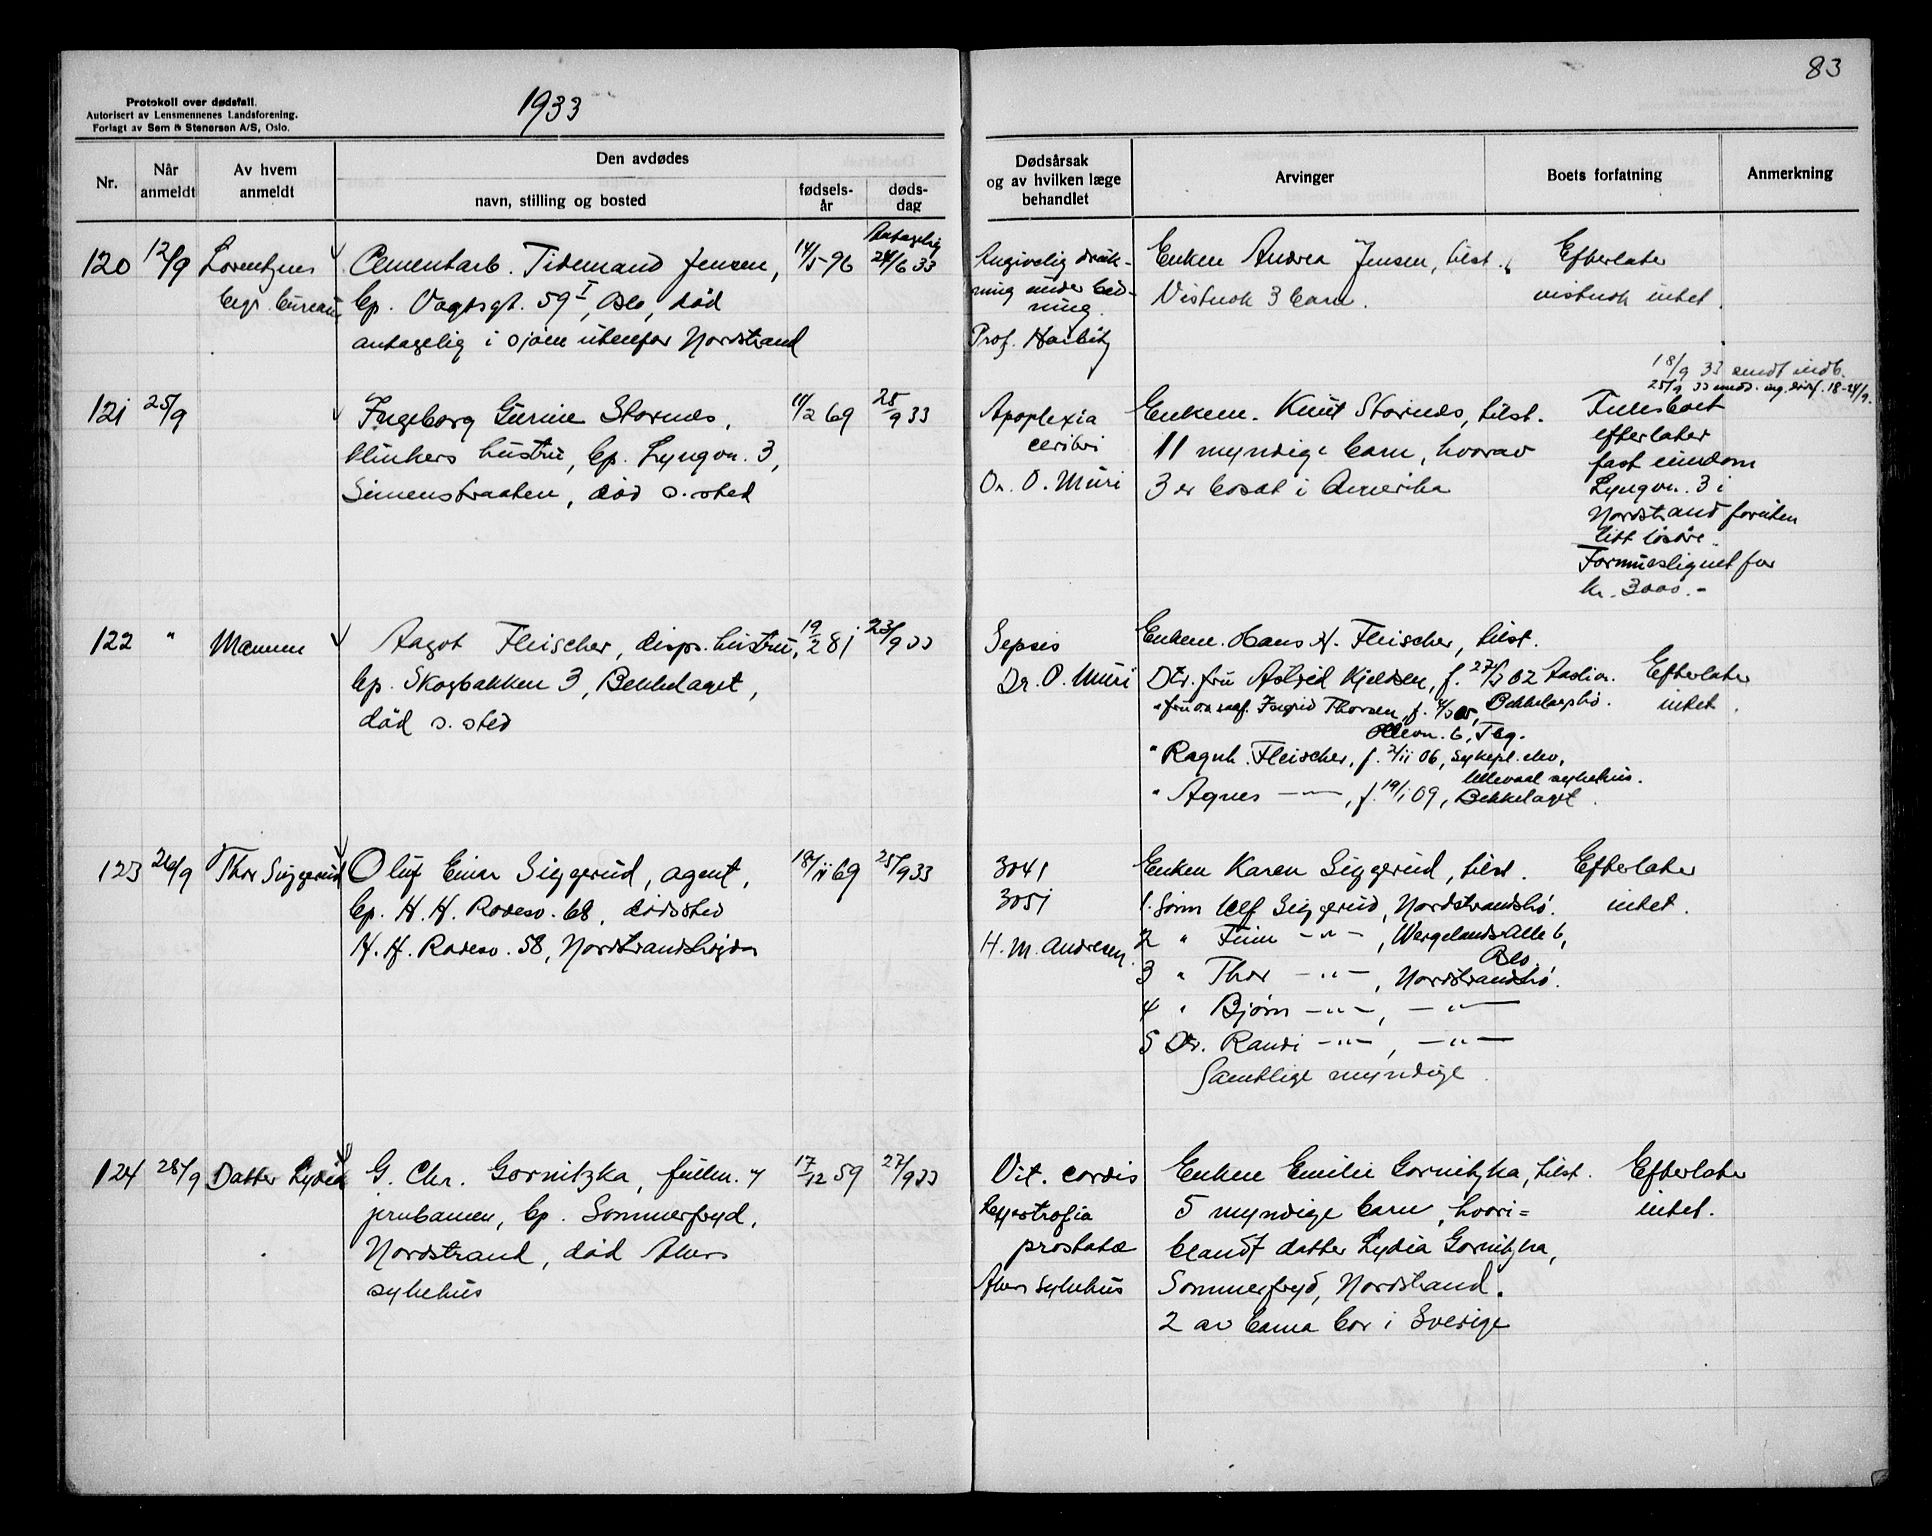 83
1933
Protokoll over dødsfall.
Autorisert av Lensmennenes Landsforening.
Forlagt av Sem & Stenersen A/S, Oslo.
Nr.
Når anmeldt
Av hvem anmeldt
Den avdødes
navn, stilling og bosted
fødsels-år
døds-dag
Dødsårsak og av hvilken læge behandlet
Arvinger
Boets forfatning
Anmerkning
120 12/9 Lorentzens
begr. bureau
Cementarb. Tidemand Jensen,
bp. Vogtsgt. 59 I, Oslo, død
antagelig i sjøen utenfor Nordstrand
14/5-96
Antagelig
24/6 33
Angivelig druk-
ning under bad-
ning.
Prof. Harbitz
Enken Andrea Jensen, tilst.
Vistnok 3 barn.
Efterlater
vistnok intet.
18/9 33 sendt indb.
121 25/9
Ingeborg Gurine Stornes,
blinkers hustru, bp. Lyngvn. 3,
Simenstraaten, død s. sted
11/2 69
25/9 33
Apoplexia
ceribri
Dr. O. Muri
Enkem. Knut Stornes, tilst.
11 myndige barn, hvorav
3 er bosat i Amerika
Fellesboet
efterlater
fast eiendom
Lyngvn. 3 i
Nordstrand foruten
litt løsøre.
Formueslignet for
kr. 3000.-
122 " Mannen
Aagot Fleischer, disp. hustru,
bp. Skogbakken 3, Bekkelaget,
død s. sted
19/2 81
23/9 33
Sepsis
Dr. O. Muri
Enkem. Hans H. Fleischer, tilst.
Dtr. fru Astrid Kjeldsen, f. 02
Bekkelagshø.
Ingrid Thorsen, f.
6, Tbg.
" Ragnh. Fleischer, f. 2/11 06, sykepl. elev,
Ullevaal sykehus.
" Agnes —"—, f. 19/1 09, Bekkelaget.
Efterlater
intet.
123 26/9 Thor Siggerud
Oluf Einar Siggerud, agent,
bp. H. H. Rodesv. 68, dødssted
H. H. Rodesv. 58, Nordstrandshøgda
18/11 69
25/9 33
3041
3051
H. M. Andresen.
Enken Karen Siggerud, tilst.
1. Sønn Ulf Siggerud, Nordstrandshø.
2 " Finn —"—, Wergelands Alle 6,
Oslo
3 " Thor —"—, Nordstrandshø.
4 " Bjørn —"—, —"—
5 Dtr. Randi —"—, —"—
Samtlige myndige.
Efterlater
intet.
124 28/9 Datter Lydia
G. Chr. Gornitzka, fullm. v
jernbanen, bp. Sommerfryd,
Nordstrand, død Akers
sykehus
17/12 59
27/9 33
Vit. cordis
Hypertrofia
prostatæ
Akers Sykehus
Enken Emilie Gornitzka, tilst.
5 myndige barn, hvori=
blandt datter Lydia Gornitzka,
Sommerfryd, Nordstrand.
2 av barna bor i Sverige
Efterlater
intet.